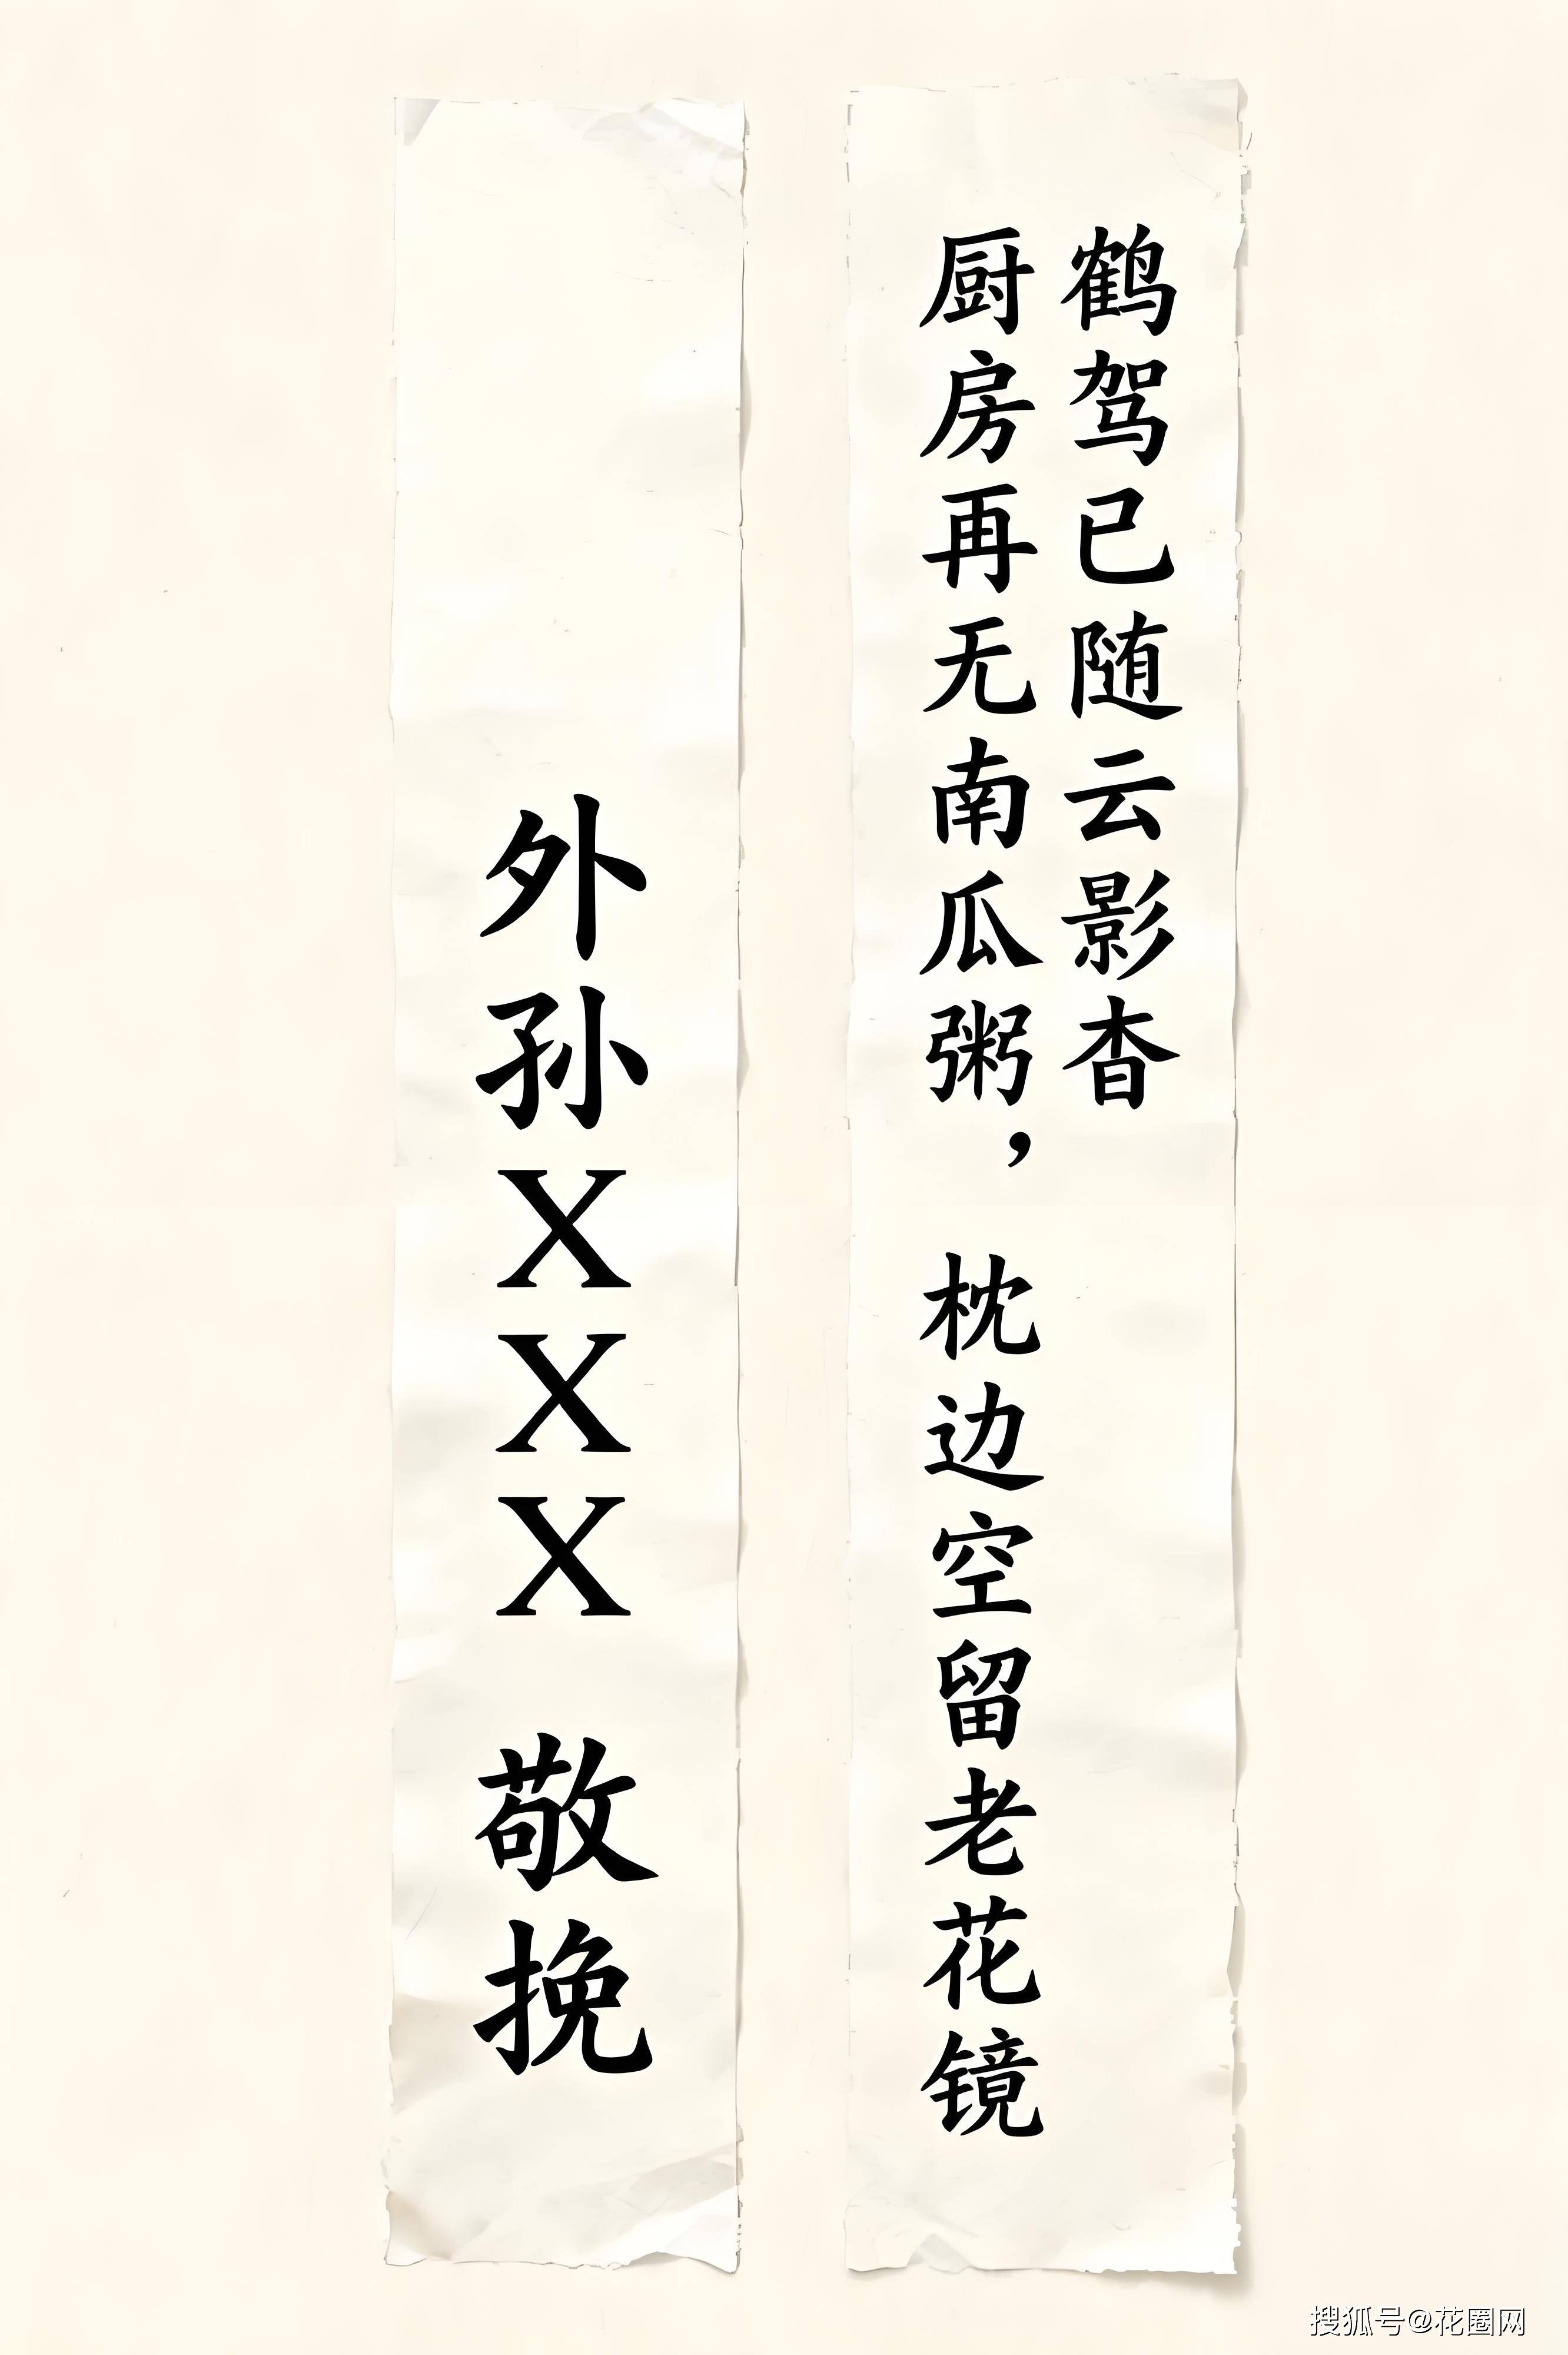 鹤驾已随云影杳
厨房再无南瓜粥，枕边空留老花镜
外孙XXX 敬挽
搜狐号@花圈网